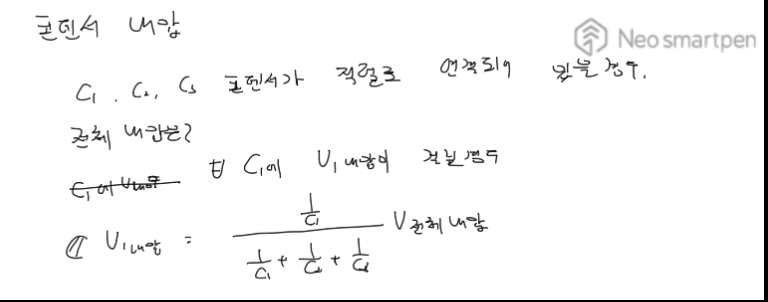 콘덴서 내압
Neo smartpen
C₁, C₂, C₃ 콘덴서가 직렬로 연결되어 있을 경우.
전체 내압은?
C₁에 V₁내압이 걸릴 경우
V₁내압 = \frac{\frac{1}{C₁}}{\frac{1}{C₁} + \frac{1}{C₂} + \frac{1}{C₃}} V전체 내압